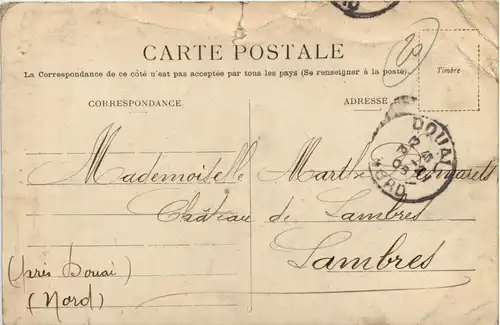 CARTE POSTALE
La Correspondance de ce côté n'est pas acceptée par tous les pays (Se renseigner à la poste).
Timbre
20
CORRESPONDANCE
ADRESSE
DOUAI
NORD
Mademoiselle Marthe
Château de Lambres
Lambres
(près Douai)
(Nord)